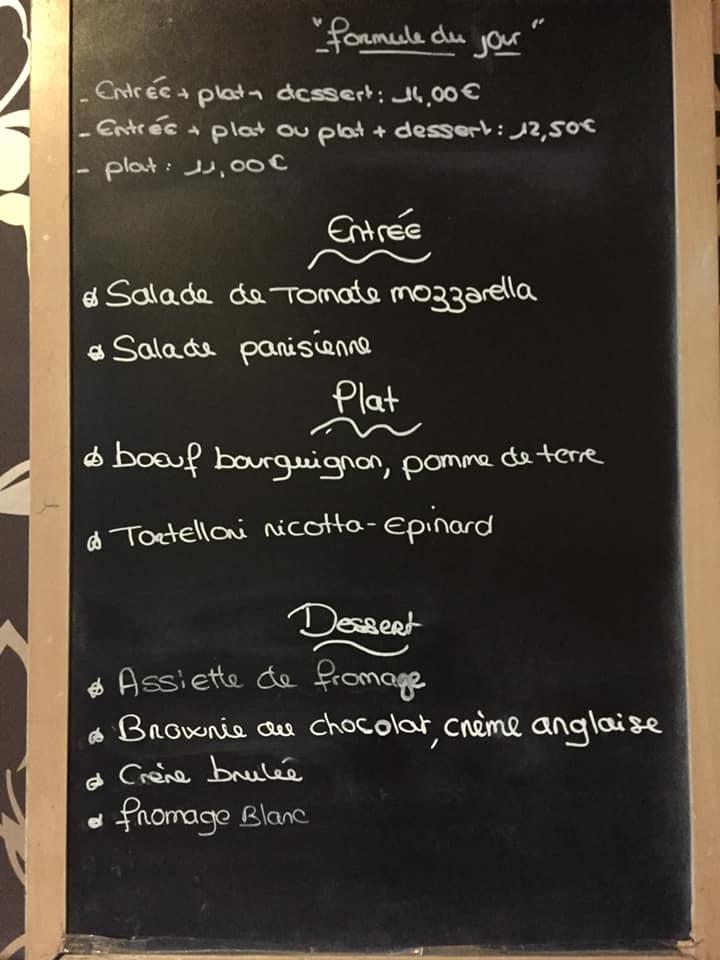 "formule du jour"
- Entrée + plat + dessert : 14,00€
- Entrée + plat ou plat + dessert : 12,50€
- plat : 11,00€
Entrée
Salade de Tomate mozzarella
Salade parisienne
Plat
boeuf bourguignon, pomme de terre
Tortelloni ricotta-Epinard
Dessert
Assiette de fromage
Brownie au chocolat, crème anglaise
Crème brulée
fromage Blanc